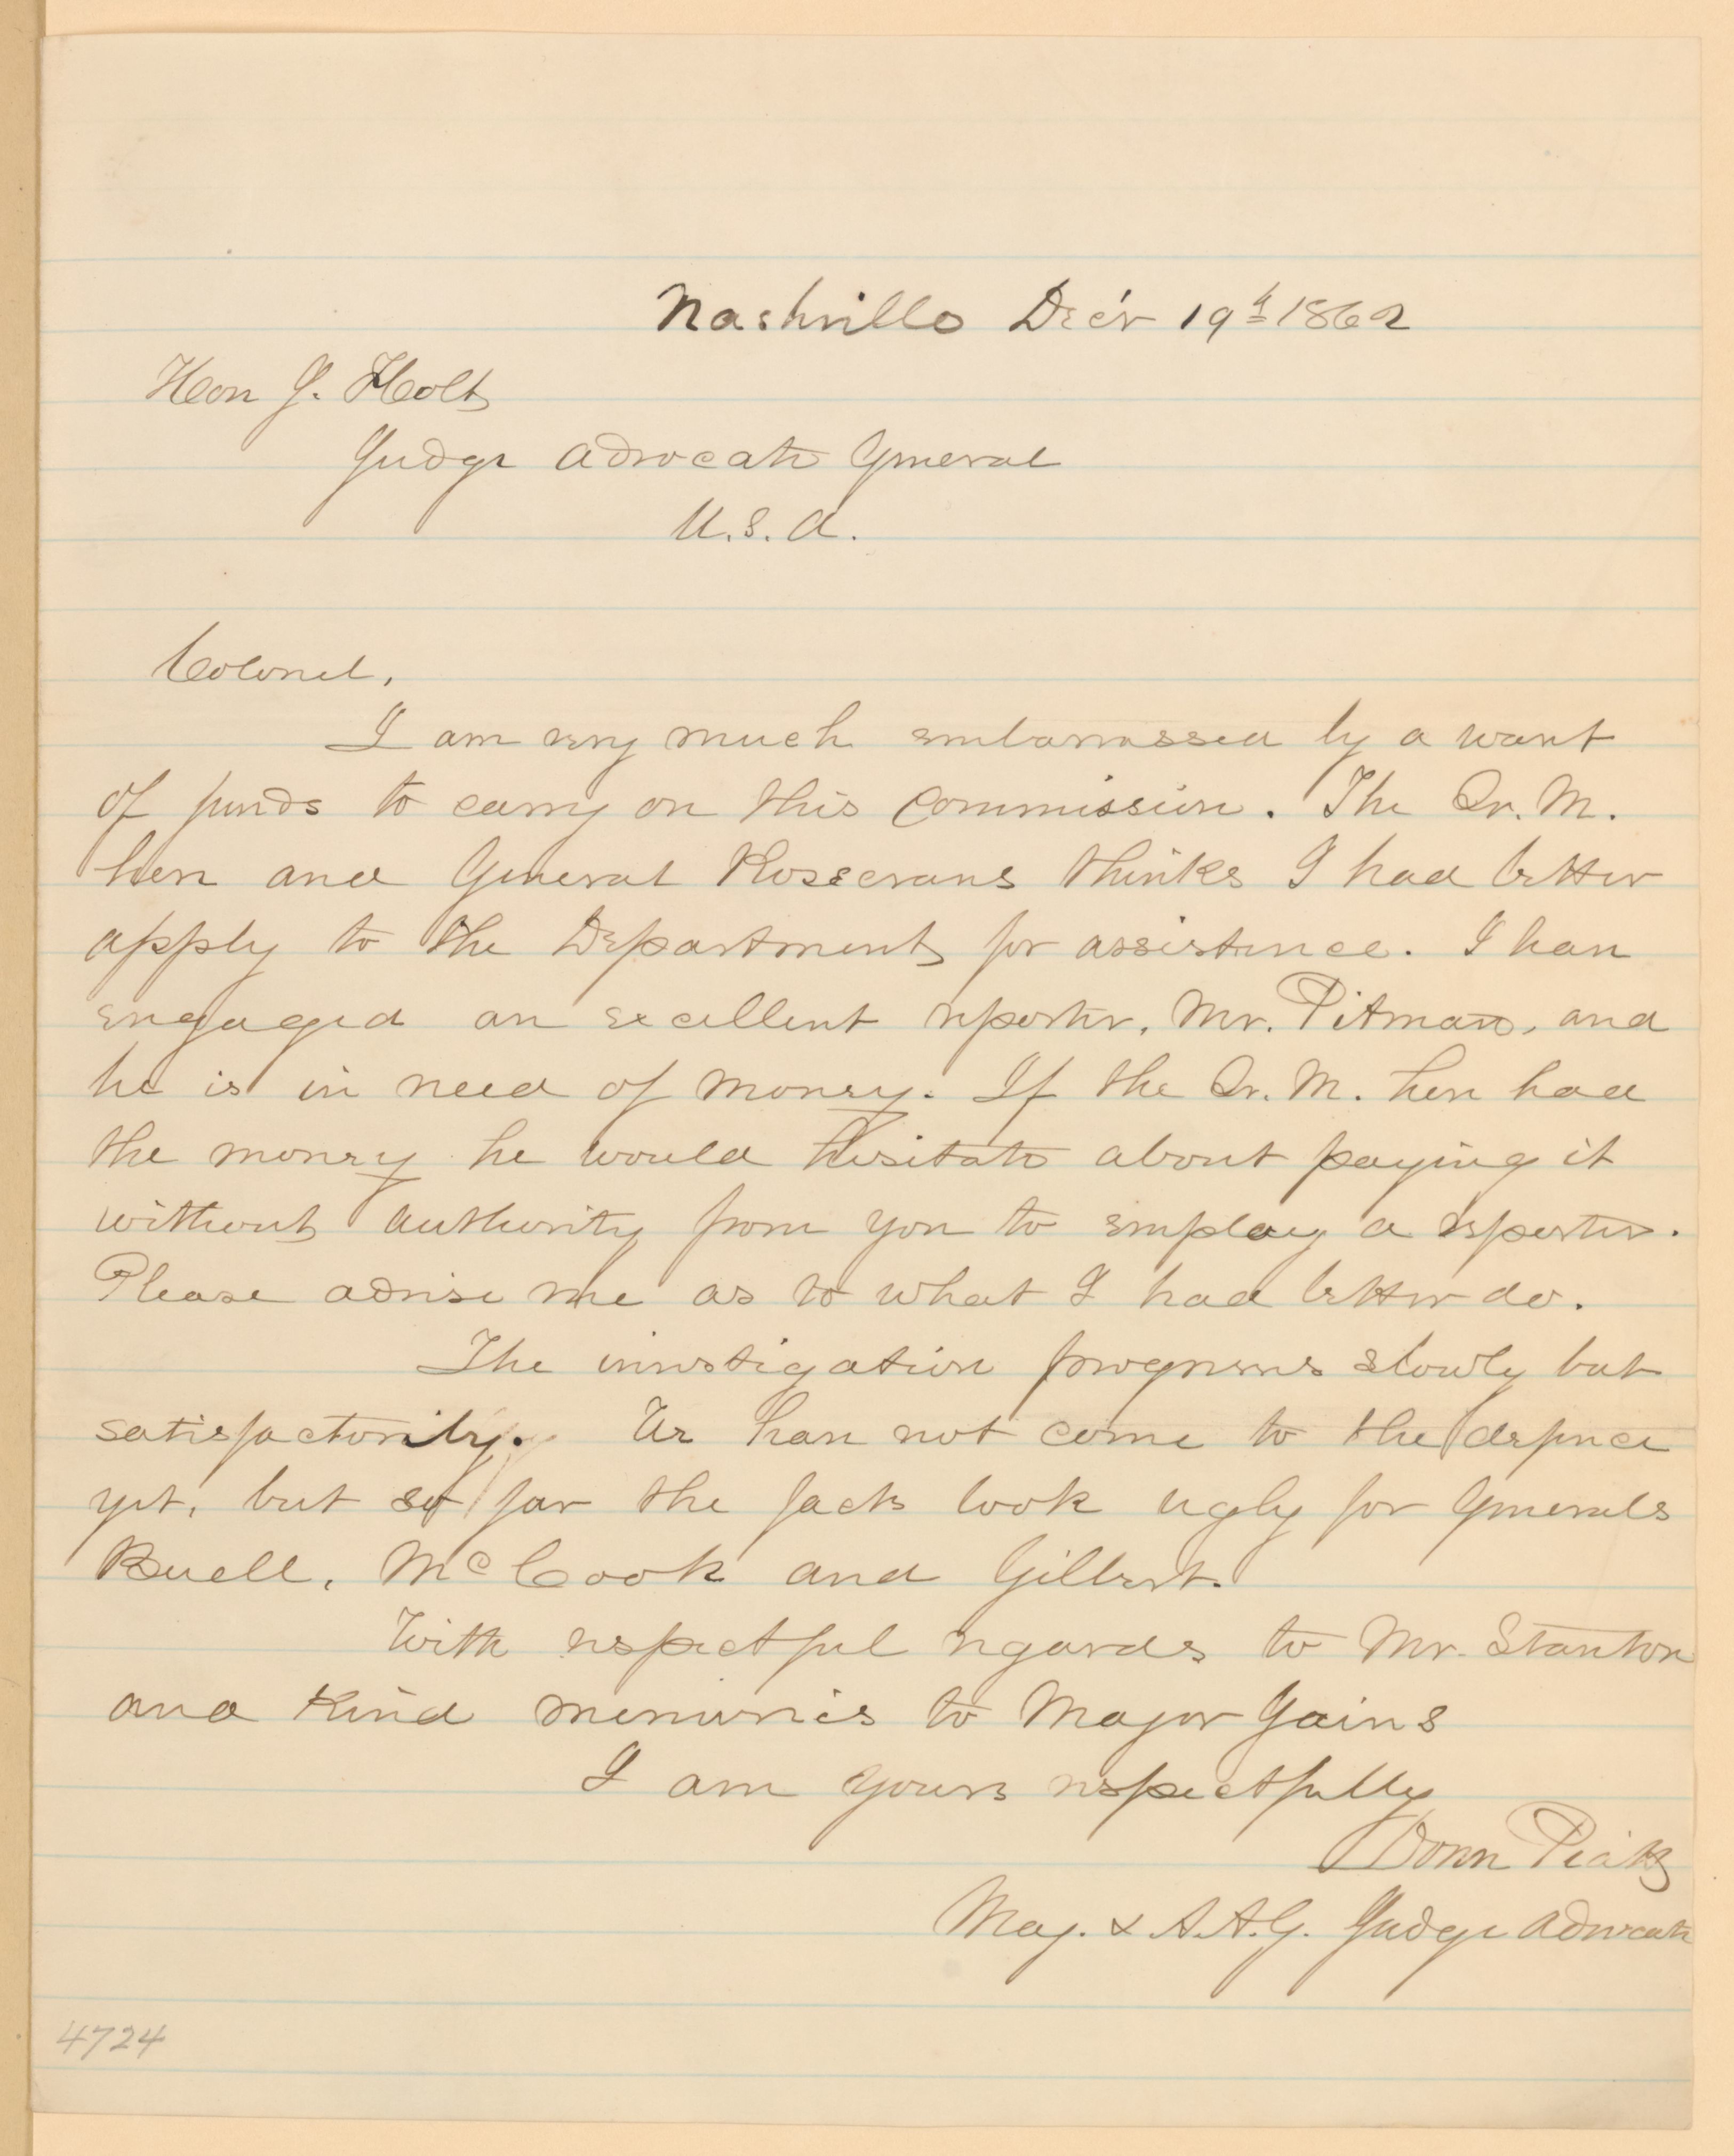 Nashville Dec'r 19th 1862
Hon J. Holt
Judge Advocate General
U.S.A.
Colonel,
I am very much embarrassed by a want
of funds to carry on this Commission. The Qr. M.
here and General Rosecrans thinks I had better
apply to the Department for assistence. I have
engaged an excellent reporter, Mr. Pitman, and
he is in need of money. If the Qr. M. here had
the money he would hesitate about paying it
without authority from you to employ a reporter.
Please advise me as to what I had better do.
The investigation progresses slowly but
satisfactorily. We have not come to the defence
yet, but so far the facts look ugly for Generals
Buell, McCook and Gilbert.
With respectful regards to Mr. Stanton
and kind memories to Major Gains
I am yours respectfully
Donn Piatt
Maj. & A.A.G. Judge Advocate
4724